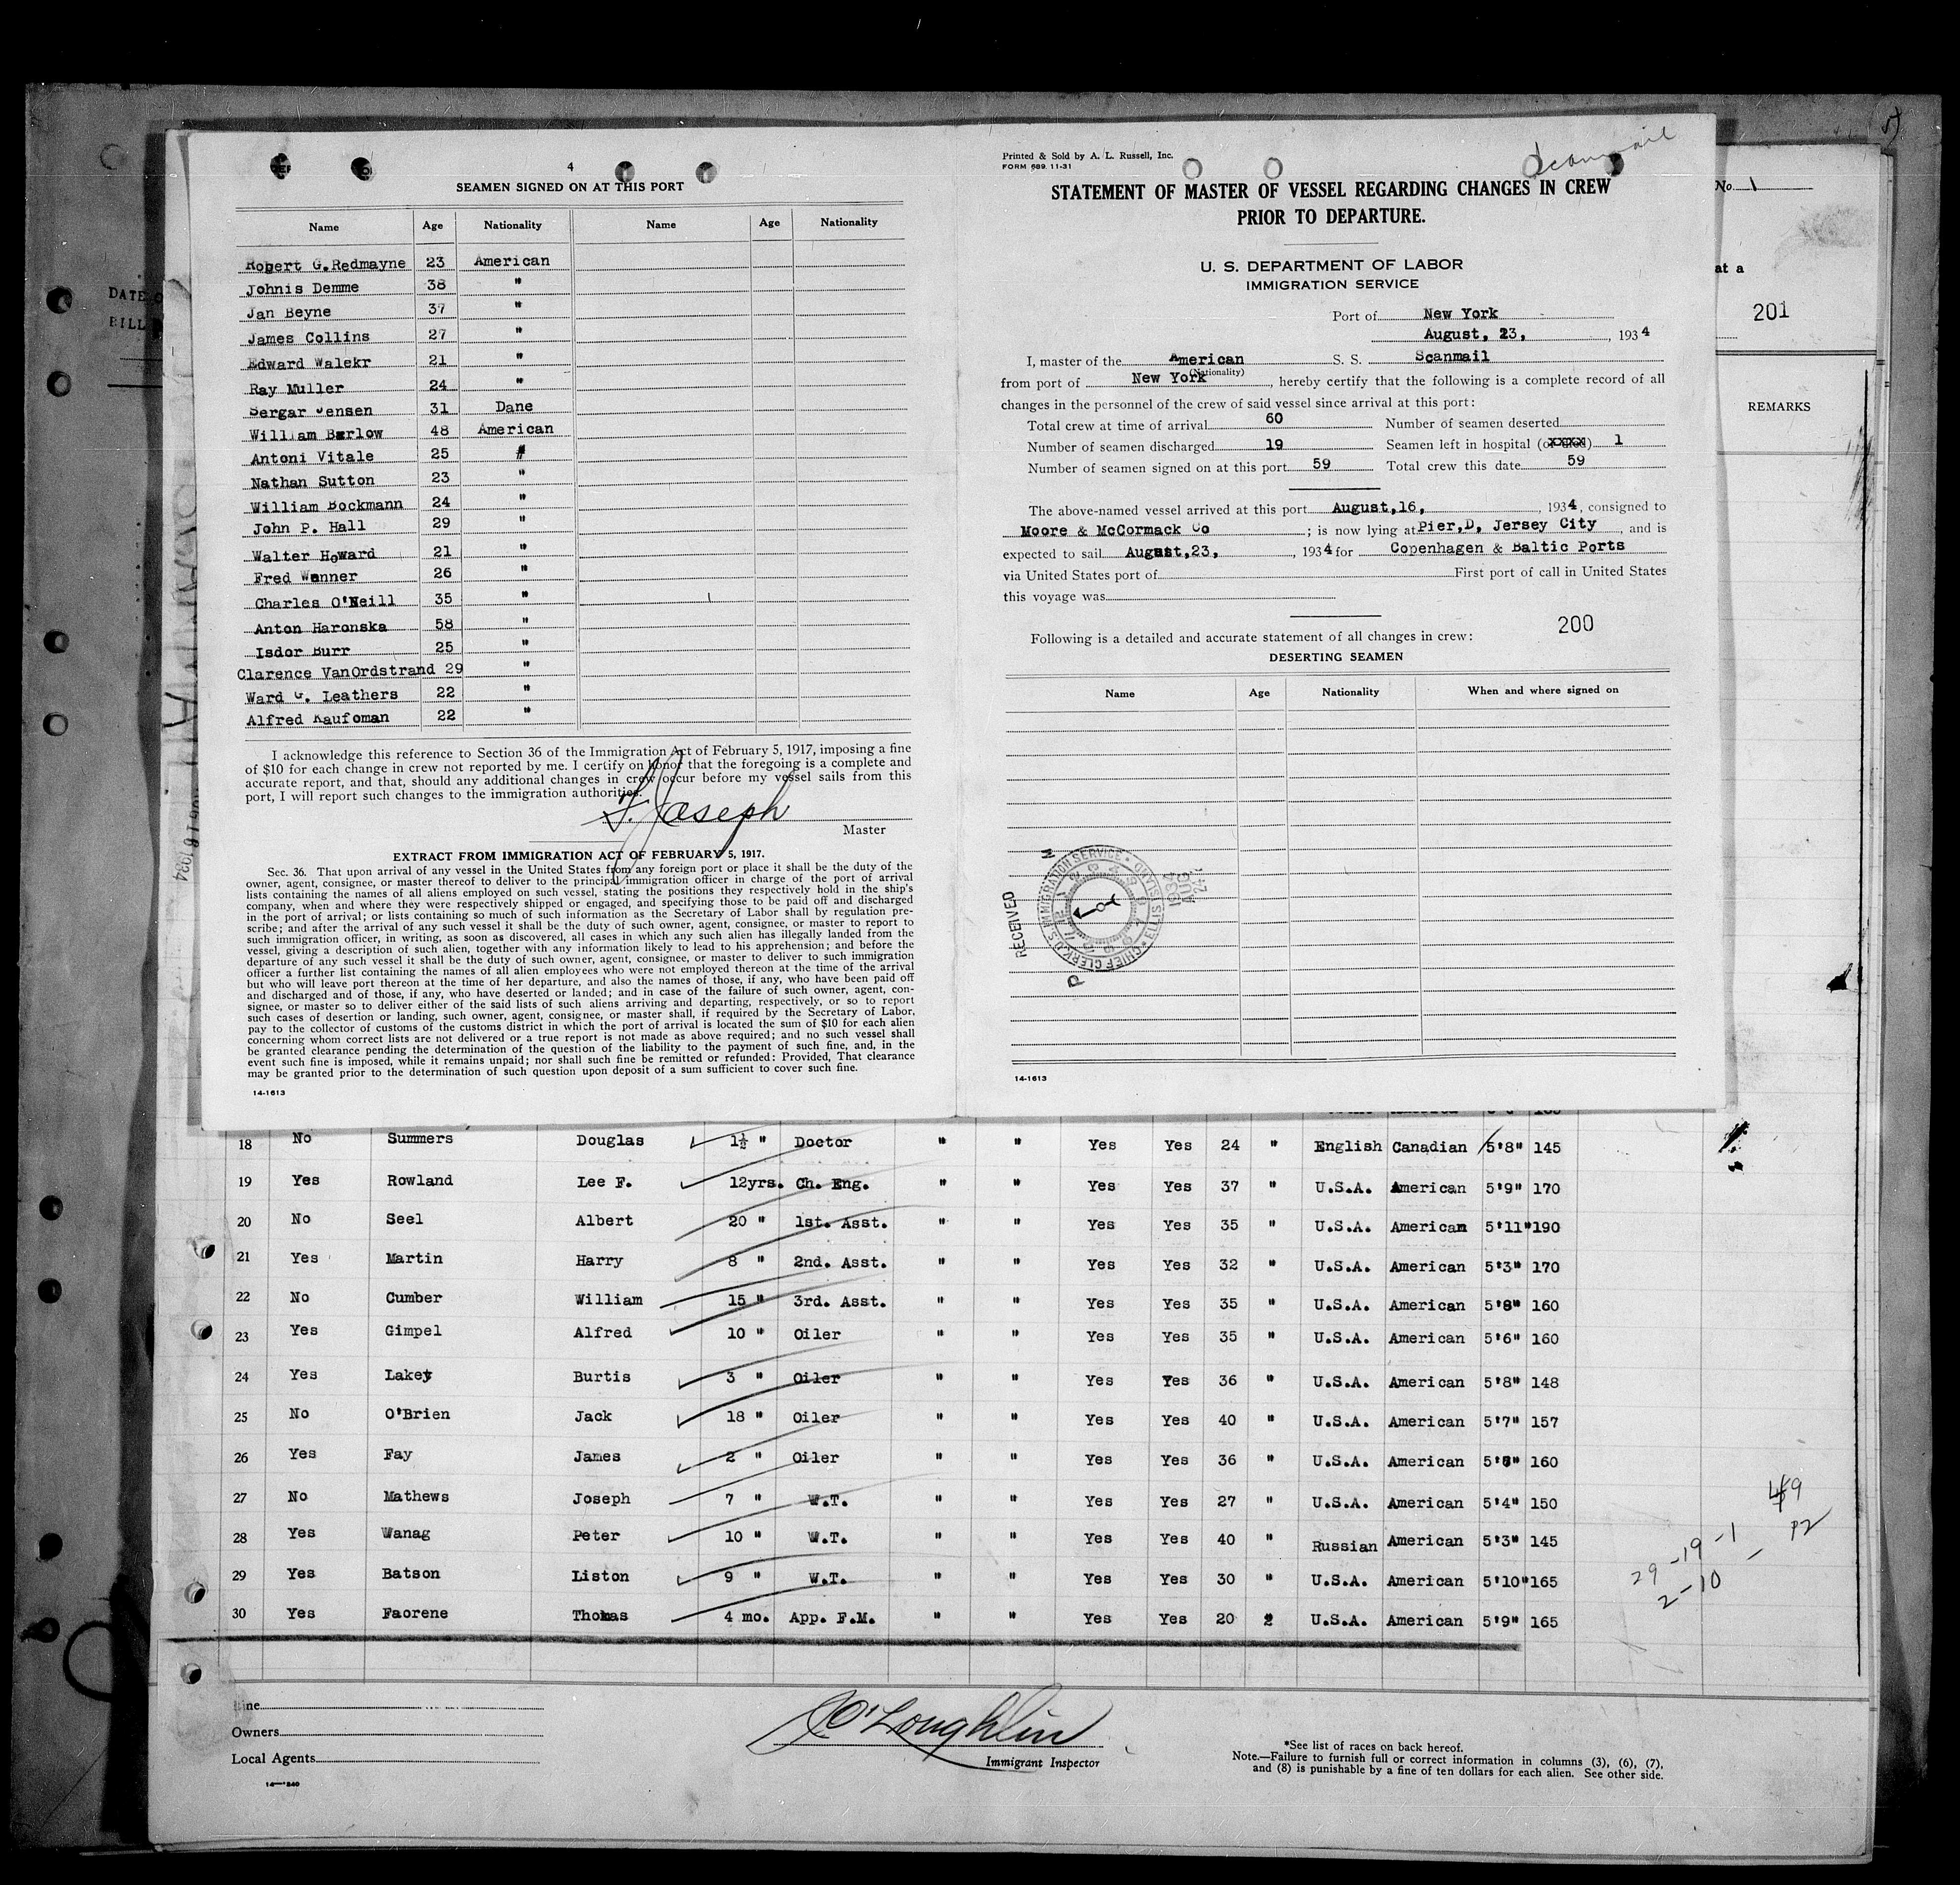 4
SEAMEN SIGNED ON AT THIS PORT
Name Age Nationality Name Age Nationality
Robert G.Redmayne 23 American
Johnis Demme 38 "
Jan Beyne 37 "
James Collins 27 "
Edward Walekr 21 "
Ray Muller 24 "
Sergar Jensen 31 Dane
William Barlow 48 American
Antoni Vitale 25 "
Nathan Sutton 23 "
William Bockmann 24 "
John P. Hall 29 "
Walter Howard 21 "
Fred Wanner 26 "
Charles O'Neill 35 "
Anton Haronska 58 "
Isdor Burr 25 "
Clarence VanOrdstrand 29 "
Ward G. Leathers 22 "
Alfred Kaufoman 22 "
I acknowledge this reference to Section 36 of the Immigration Act of February 5, 1917, imposing a fine
of $10 for each change in crew not reported by me. I certify on honor that the foregoing is a complete and
accurate report, and that, should any additional changes in crew occur before my vessel sails from this
port, I will report such changes to the immigration authorities.
F. Joseph
Master
EXTRACT FROM IMMIGRATION ACT OF FEBRUARY 5, 1917.
Sec. 36. That upon arrival of any vessel in the United States from any foreign port or place it shall be the duty of the
owner, agent, consignee, or master thereof to deliver to the principal immigration officer in charge of the port of arrival
lists containing the names of all aliens employed on such vessel, stating the positions they respectively hold in the ship's
company, when and where they were respectively shipped or engaged, and specifying those to be paid off and discharged
in the port of arrival; or lists containing so much of such information as the Secretary of Labor shall by regulation pre-
scribe; and after the arrival of any such vessel it shall be the duty of such owner, agent, consignee, or master to report to
such immigration officer, in writing, as soon as discovered, all cases in which any such alien has illegally landed from the
vessel, giving a description of such alien, together with any information likely to lead to his apprehension; and before the
departure of any such vessel it shall be the duty of such owner, agent, consignee, or master to deliver to such immigration
officer a further list containing the names of all alien employees who were not employed thereon at the time of the arrival
but who will leave port thereon at the time of her departure, and also the names of those, if any, who have been paid off
and discharged and of those, if any, who have deserted or landed; and in case of the failure of such owner, agent, con-
signee, or master so to deliver either of the said lists of such aliens arriving and departing, respectively, or so to report
such cases of desertion or landing, such owner, agent, consignee, or master shall, if required by the Secretary of Labor,
pay to the collector of customs of the customs district in which the port of arrival is located the sum of $10 for each alien
concerning whom correct lists are not delivered or a true report is not made as above required; and no such vessel shall
be granted clearance pending the determination of the question of the liability to the payment of such fine, and, in the
event such fine is imposed, while it remains unpaid; nor shall such fine be remitted or refunded: Provided, That clearance
may be granted prior to the determination of such question upon deposit of a sum sufficient to cover such fine.
14-1613
Scanmail
Printed & Sold by A. L. Russell, Inc.
FORM 689 11-31
STATEMENT OF MASTER OF VESSEL REGARDING CHANGES IN CREW
PRIOR TO DEPARTURE.
U. S. DEPARTMENT OF LABOR
IMMIGRATION SERVICE
Port of New York
August, 23, , 1934
I, master of the American S. S. Scanmail
(Nationality)
from port of New York, hereby certify that the following is a complete record of all
changes in the personnel of the crew of said vessel since arrival at this port:
Total crew at time of arrival 60 Number of seamen deserted
Number of seamen discharged 19 Seamen left in hospital (or died) 1
Number of seamen signed on at this port 59 Total crew this date 59
The above-named vessel arrived at this port August,16, , 1934, consigned to
Moore & McCormack Co ; is now lying at Pier,D, Jersey City , and is
expected to sail August,23, , 1934 for Copenhagen & Baltic Ports
via United States port of First port of call in United States
this voyage was
200
Following is a detailed and accurate statement of all changes in crew:
DESERTING SEAMEN
Name Age Nationality When and where signed on
RECEIVED
U.S. IMMIGRATION SERVICE
CHIEF CLERK
ELLIS ISLAND
1934 AUG 24
14-1613
No. 1
at a
201
REMARKS
DATE O
BILL
18 No Summers Douglas 1½ " Doctor " " Yes Yes 24 " English Canadian 5'8" 145
19 Yes Rowland Lee F. 12yrs. Ch. Eng. " " Yes Yes 37 " U.S.A. American 5'9" 170
20 No Seel Albert 20 " 1st. Asst. " " Yes Yes 35 " U.S.A. American 5'11" 190
21 Yes Martin Harry 8 " 2nd. Asst. " " Yes Yes 32 " U.S.A. American 5'3" 170
22 No Cumber William 15 " 3rd. Asst. " " Yes Yes 35 " U.S.A. American 5'8" 160
23 Yes Gimpel Alfred 10 " Oiler " " Yes Yes 35 " U.S.A. American 5'6" 160
24 Yes Lakey Burtis 3 " Oiler " " Yes Yes 36 " U.S.A. American 5'8" 148
25 No O'Brien Jack 18 " Oiler " " Yes Yes 40 " U.S.A. American 5'7" 157
26 Yes Fay James 2 " Oiler " " Yes Yes 36 " U.S.A. American 5'8" 160
27 No Mathews Joseph 7 " W.T. " " Yes Yes 27 " U.S.A. American 5'4" 150
28 Yes Wanag Peter 10 " W.T. " " Yes Yes 40 " Russian American 5'3" 145
29 Yes Batson Liston 9 " W.T. " " Yes Yes 30 " U.S.A. American 5'10" 165
30 Yes Faorene Thomas 4 mo. App. F.M. " " Yes Yes 20 " U.S.A. American 5'9" 165
29 -19 -1
2 -10
Owners
Local Agents
O'Loughlin
Immigrant Inspector
*See list of races on back hereof.
Note.—Failure to furnish full or correct information in columns (3), (6), (7),
and (8) is punishable by a fine of ten dollars for each alien. See other side.